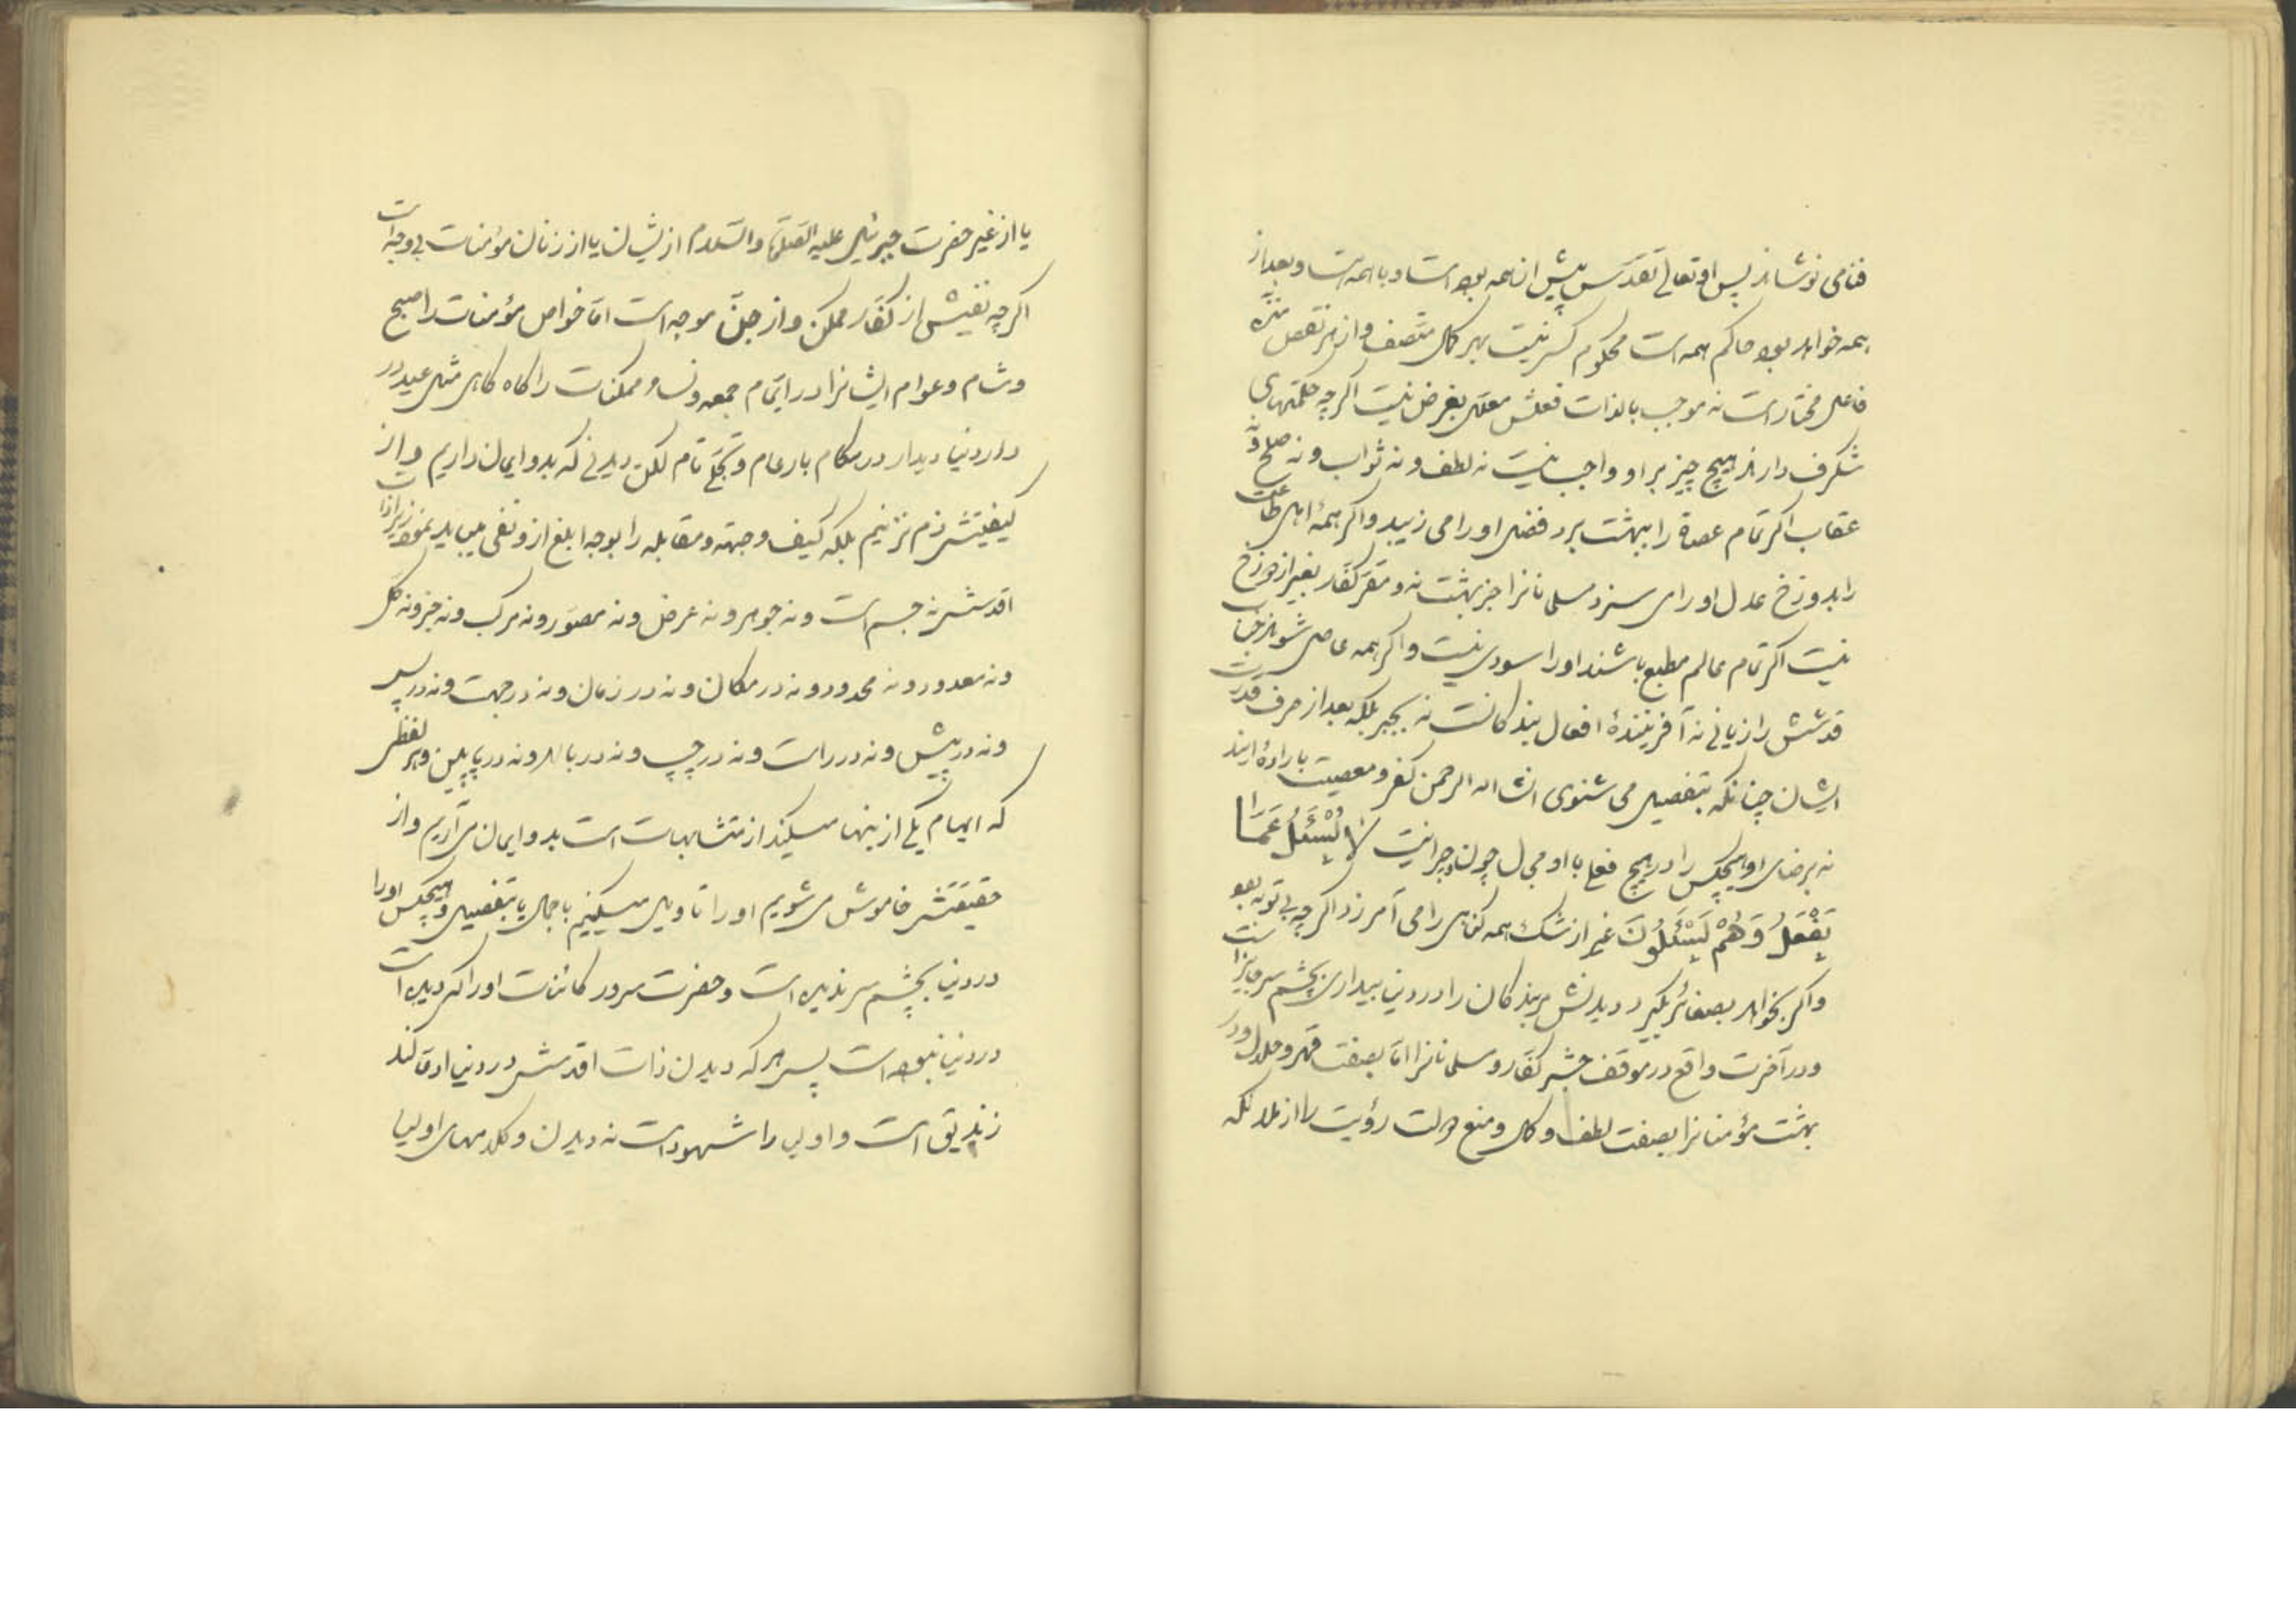 فنا می نوشاند پس او تعالی تقدس پیش از همه بوده است و با همه است و بعد از
همه خواهد بود حاکم همه است محکوم کس نیست بهر کمال متصف و از هر نقص منزه
فاعل مختار است نه موجب بالذات فعلش معلل بغرض نیست اگرچه حکمتهای
شگرف دارد هیچ چیز بر او واجب نیست نه لطف و نه ثواب و نه صلح و نه
عقاب اگر تمام عصاة را ببهشت برد فضل او را می زیبد و اگر همۀ اهل طاعت
را بدوزخ عدل او را می سزد مسلمانانرا جز بهشت نه و مقر کفار بغیر از دوزخ
نیست اگر تمام عالم مطیع باشند او را سودی نیست و اگر همه عاصی شوند جناب
قدسش را زیانی نه آفرینندۀ افعال بندگانست نه بجبر بلکه بعد از صرف قدرت
ایشان چنانکه بتفصیل می شنوی انشا الله الرحمن کفر و معصیت بارادۀ ایند
نه برضای او هیچکس را در هیچ فعل با او مجال چون و چرا نیست لَا یُسْئَلُ عَمَّا
یَفْعَلُ وَهُمْ یُسْئَلُونَ غیر از شرک همه گناهی را می آمرزد اگرچه بی توبه بود
و اگر بخواهد بصغائر بگیرد دیدنش مر بندگان را در دنیا ببیداری بچشم سر جایز است
و در آخرت واقع در موقف حشر کفار و مسلمانانرا اما بصفت قهر و جلال و در
بهشت مؤمنانرا بصفت لطف و کمال و منع دولت رؤیت را از ملائکه
یا از غیر حضرت جبرئیل علیه الصلوة والسلام از ایشان یا از زنان مؤمنات بی وجه است
اگرچه نفیش از کفار ممکن و از جن موجه است اما خواص مؤمنات را صبح
و شام و عوام ایشانرا در ایام جمعه و نسا و ممکنات را گاه گاهی مثل عید در
دار دنیا دیدار در مکام بار عام و تجلی تام لکن دیدنی که بدو ایمان داریم و از
کیفیتش دم نزنیم بلکه کیف و جهته و مقابله را بوجه ابلغ از و نفی میباید نمود زیرا ذات
اقدسش نه جسم است و نه جوهر و نه عرض و نه مصور و نه مرکب و نه جز و نه کل
و نه معدود و نه محدود و نه در مکان و نه در زمان و نه در جهت و نه در پس
و نه در پیش و نه در راست و نه در چپ و نه در بالا و نه در پایین و هر لفظی
که ایهام یکی از ینها میکند از متشابهات است بدو ایمان می آریم و از
حقیقتش خاموش می شویم او را تأویل میکنیم باجمال یا بتفصیل و هیچکس او را
در دنیا بچشم سر ندیده است و حضرت سرور کائنات او را اگر دیده است
در دنیا نبوده است پس هر که دیدن ذات اقدسش در دنیا ادعا کند
زندیق است و اولیا را شهود است نه دیدن و کلامهای اولیا